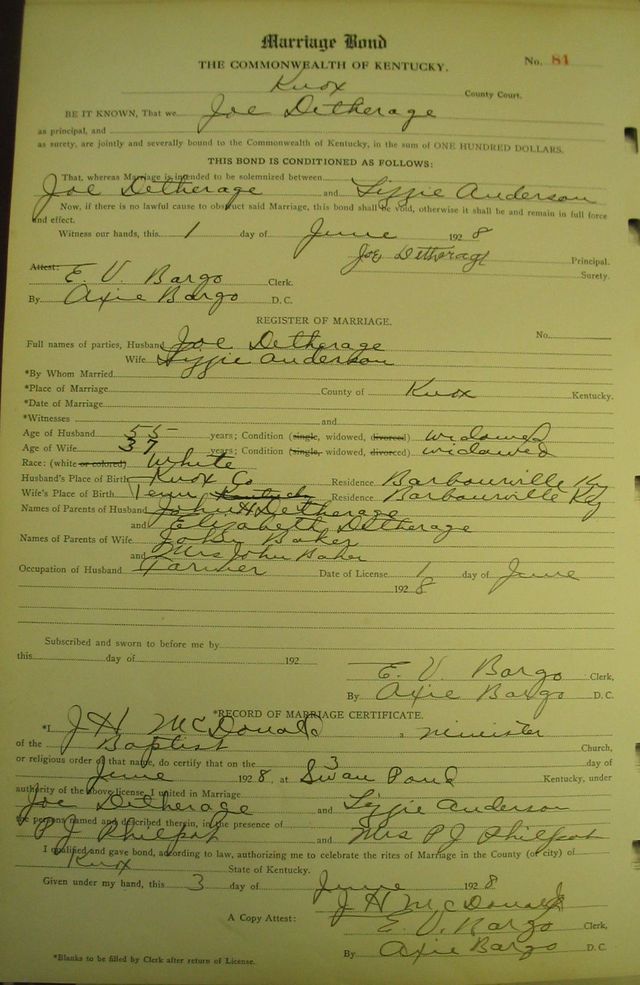 Marriage Bond
THE COMMONWEALTH OF KENTUCKY.
No. 81
Knox County Court.
BE IT KNOWN, That we Joe Detherage
as principal, and
as surety, are jointly and severally bound to the Commonwealth of Kentucky, in the sum of ONE HUNDRED DOLLARS.
THIS BOND IS CONDITIONED AS FOLLOWS:
That, whereas Marriage is intended to be solemnized between
Joe Detherage and Lizzie Anderson
Now, if there is no lawful cause to obstruct said Marriage, this bond shall be void, otherwise it shall be and remain in full force
and effect.
Witness our hands, this 1 day of June 1928
Joe Detherage Principal.
Surety.
Attest:
E. V. Bargo Clerk.
By Axie Bargo D. C.
REGISTER OF MARRIAGE.
No.
Full names of parties, Husband Joe Detherage
Wife Lizzie Anderson
*By Whom Married
*Place of Marriage County of Knox Kentucky.
*Date of Marriage
*Witnesses and
Age of Husband 55 years; Condition (single, widowed, divorced) widowed
Age of Wife 37 years; Condition (single, widowed, divorced) widowed
Race: (white or colored) White
Husband's Place of Birth Knox Co Residence Barbourville Ky
Wife's Place of Birth Tenn Kentucky Residence Barbourville Ky
Names of Parents of Husband John H Detherage
and Elizabeth Detherage
Names of Parents of Wife John Baker
and Mrs John Baker
Occupation of Husband Farmer Date of License 1 day of June
1928
Subscribed and sworn to before me by
this day of 192
E. V. Bargo Clerk,
By Axie Bargo D. C.
*RECORD OF MARRIAGE CERTIFICATE.
*I J H McDonald, a minister
of the Baptist Church,
or religious order of that name, do certify that on the 3 day of
June 1928, at Swan Pond Kentucky, under
authority of the above license, I united in Marriage
Joe Detherage and Lizzie Anderson
the persons named and described therein, in the presence of
P J Philpot and Mrs P J Philpot
I qualified and gave bond, according to law, authorizing me to celebrate the rites of Marriage in the County (or city) of
Knox State of Kentucky.
Given under my hand, this 3 day of June 1928
J H McDonald
A Copy Attest: E. V. Bargo Clerk,
By Axie Bargo D. C.
*Blanks to be filled by Clerk after return of License.